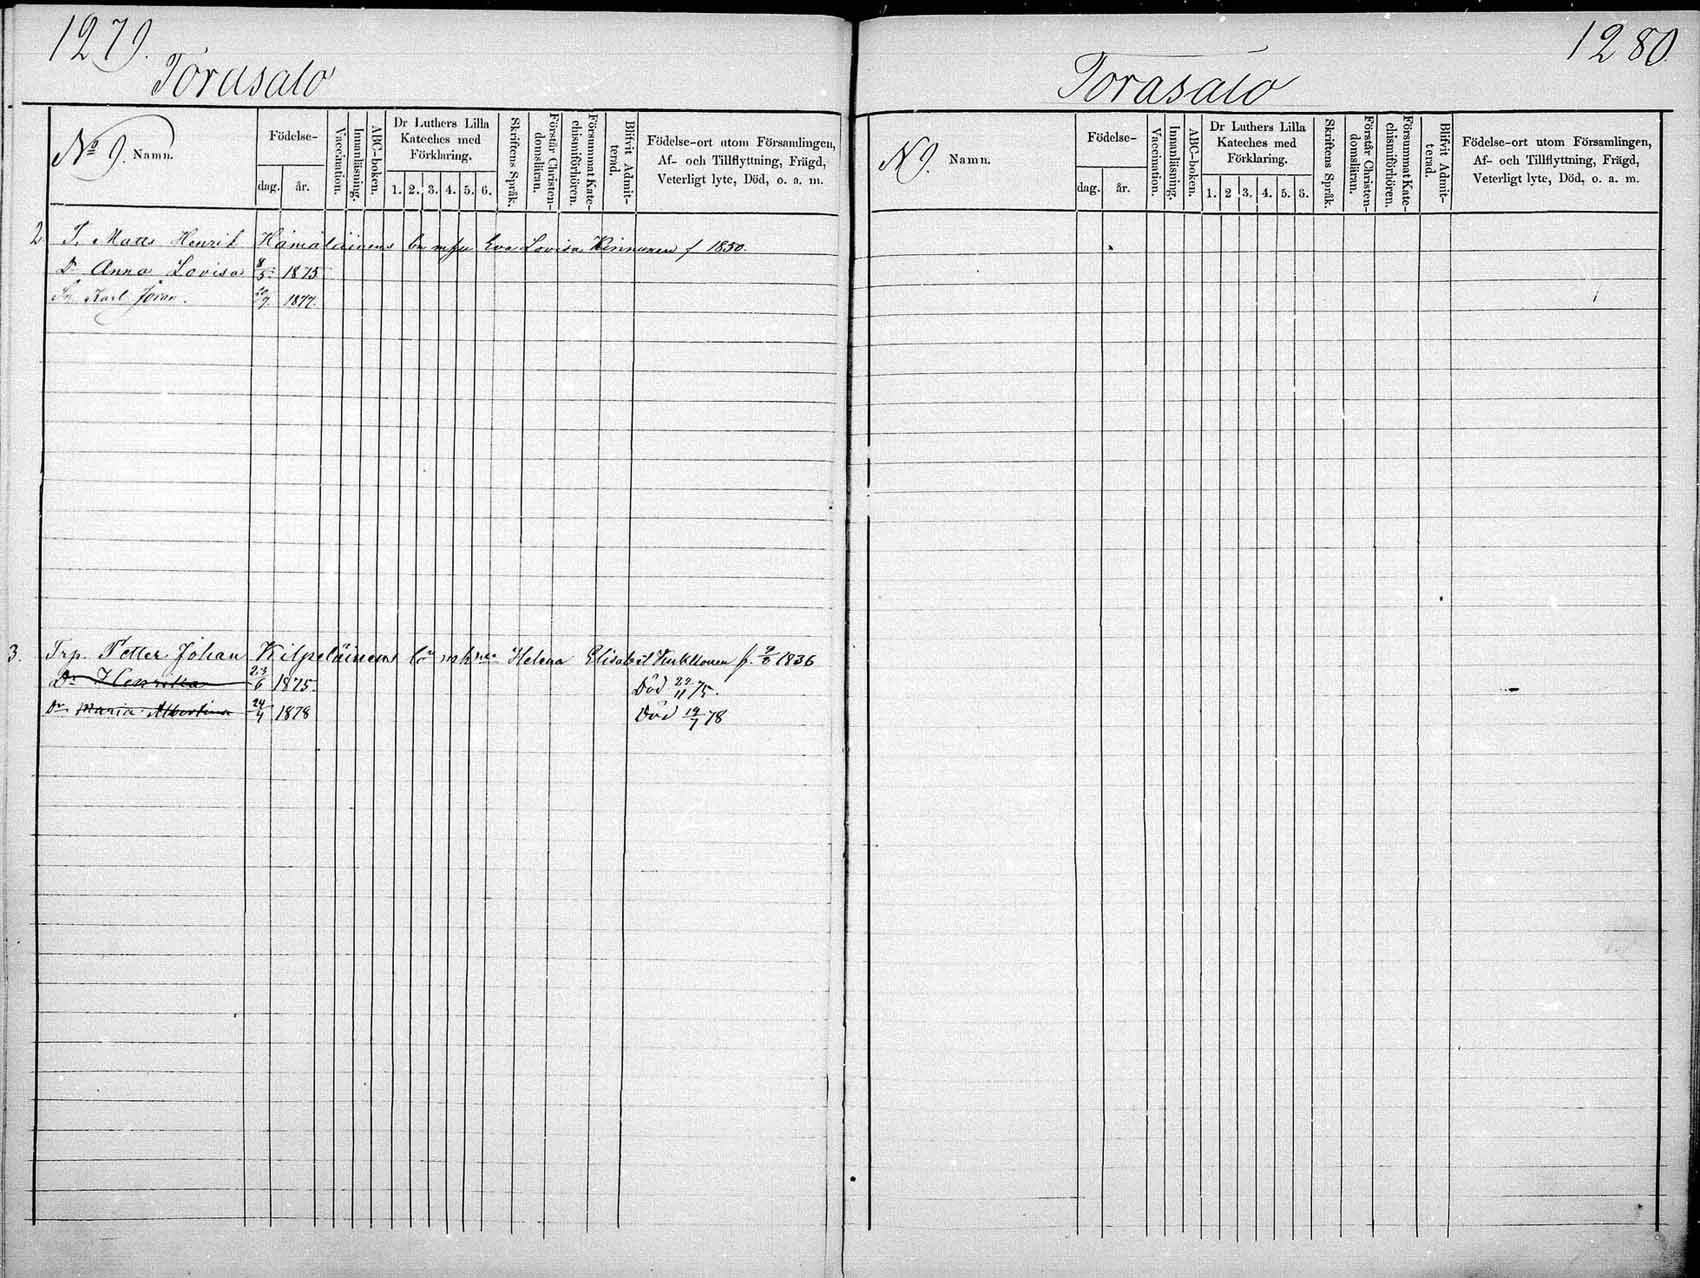 1279.
Torasalo
No 9. Namn.
Födelse-
dag. år.
Vaccination.
Innanläsning.
ABC-boken.
Dr Luthers Lilla Kateches med Förklaring.
1. 2. 3. 4. 5. 6.
Skriftens Språk.
Förstår Christendomsläran.
Försummat Katechismiförhören.
Blifvit Admitterad.
Födelse-ort utom Församlingen,
Af- och Tillflyttning, Frägd,
Veterligt lyte, Död, o. a. m.
2 Matts Henrik Hämäläinens Eva Lovisa Kinnunen f 1850.
Dr Anna Lovisa 8/5 1875
Sn Karl Johan. 7. 1877.
3. Trp. Petter Johan Kilpeläinens Helena Elisabet f. 1836
Dr Henrika 23/6 1875. Död 22/11 75.
Dr Maria Albertina 24/4 1878 Död 19/7 78
1280
Torasalo
N 9. Namn.
Födelse-
dag. år.
Vaccination.
Innanläsning.
ABC-boken.
Dr Luthers Lilla Kateches med Förklaring.
1. 2 3. 4. 5. 6.
Skriftens Språk.
Förstår Christendomsläran.
Försummat Katechismiförhören.
Blifvit Admitterad.
Födelse-ort utom Församlingen,
Af- och Tillflyttning, Frägd,
Veterligt lyte, Död, o. a. m.